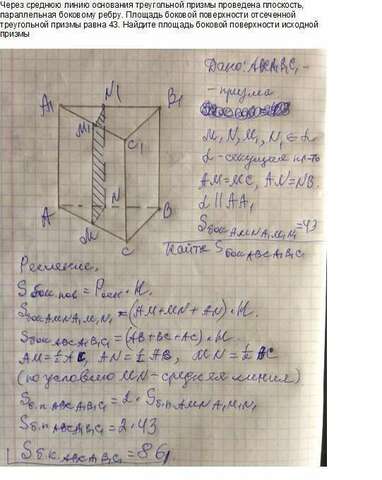 Через среднюю линию основания треугольной призмы проведена плоскость,
параллельная боковому ребру. Площадь боковой поверхности отсеченной
треугольной призмы равна 43. Найдите площадь боковой поверхности исходной
призмы
Дано: ABCA₁B₁C₁ -
- призма
M, N, M₁, N₁ ∈ α
α - секущая пл-ть
AM=MC, AN=NB.
α || AA₁
Sбок AMNA₁M₁N₁ = 43
Найти Sбок ABCA₁B₁C₁
A₁
N₁
B₁
M₁
C₁
A
N
B
M
C
Решение.
Sбок пов = Pосн · H.
Sбок AMNA₁M₁N₁ = (AM+MN+AN) · H.
Sбок ABCA₁B₁C₁ = (AB+BC+AC) · H.
AM=½AC, AN=½AB, MN=½BC
(по условию MN-средняя линия)
Sб.п ABCA₁B₁C₁ = 2 · Sб.п AMNA₁M₁N₁
Sб.п ABCA₁B₁C₁ = 2 · 43
Sб.к. ABCA₁B₁C₁ = 86